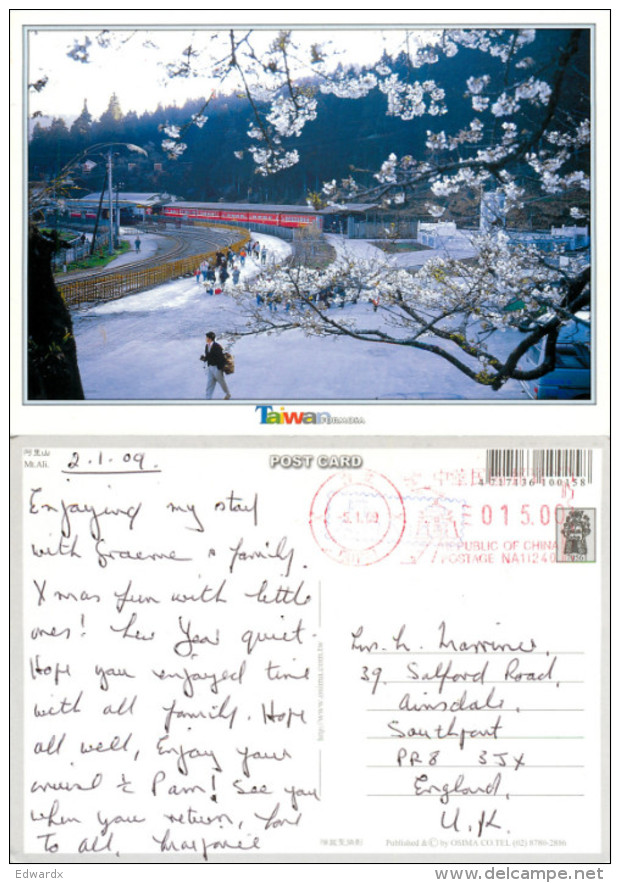 Taiwan FORMOSA
阿里山
Mt.Ali.
2.1.09.
POST CARD
4 717436 100458
中華民國
015.00
REPUBLIC OF CHINA
POSTAGE NA11240
Enjoying my stay
with Graeme & family.
Xmas fun with little
ones! New Year quiet.
Hope you enjoyed time
with all family. Hope
all well, Enjoy your
cruise Pam! See you
when you return, Love
To all, Marjorie
http://www.osima.com.tw
39, Salford Road,
Ainsdale,
Southport
PR8 3JX
England,
U.K.
Published &© by OSIMA CO.TEL (02) 8780-2886
Edwardx
delcampe.net